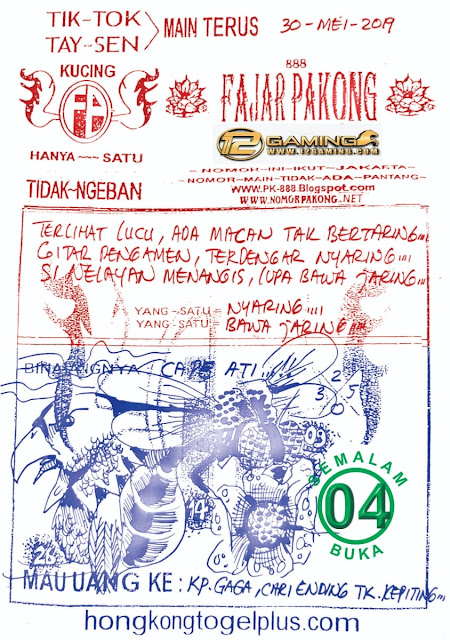 TIK-TOK
TAY-SEN
MAIN TERUS
30-MEI-2019
KUCING
HANYA ~~~ SATU
TIDAK-NGEBAN
888
FAJAR PAKONG
12 GAMING
WWW.12GAMING.COM
- NOMOR-INI-IKUT-JAKARTA-
- NOMOR-MAIN-TIDAK-ADA-PANTANG-
WWW.PK-888.Blogspot.com
WWW.NOMORPAKONG.NET
TERLIHAT LUCU, ADA MACAN TAK BERTARING
GITAR PENGAMEN, TERDENGAR NYARING
SI NELAYAN MENANGIS, LUPA BAWA JARING
YANG-SATU = NYARING
YANG-SATU = BAWA JARING
BINATANGNYA : CAPE ATI...!!!
3 2
0 5
03
19
26
SEMALAM
04
BUKA
MAU UANG KE : KP. GAGA, CARI ENDING TK. KEPITING
hongkongtogelplus.com